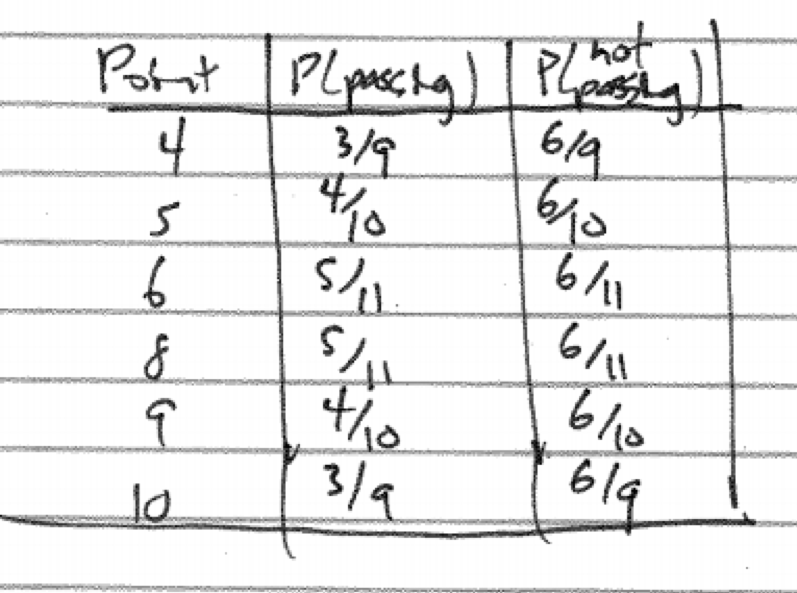 Point P(passing) P(not passing)
4 3/9 6/9
5 4/10 6/10
6 5/11 6/11
8 5/11 6/11
9 4/10 6/10
10 3/9 6/9